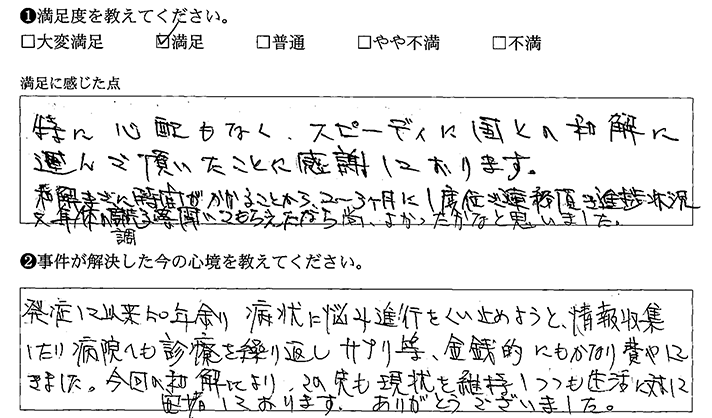 ❶満足度を教えてください。
□大変満足 ☑満足 □普通 □やや不満 □不満
満足に感じた点
特に心配もなく、スピーディに国との和解に
運んで頂いたことに感謝しております。
和解までに時間がかかることから、2〜3ヶ月に1度位ご連絡頂き進捗状況
又身体の調子等聞いてもらえたなら尚、よかったかなと思いました。
調
❷事件が解決した今の心境を教えてください。
発症して以来50年余り 病状に悩み進行をくい止めようと、情報収集
したり病院へも診療を繰り返しサプリ等、金銭的にもかなり費やして
きました。今回の和解により、この先も現状を維持しつつも生活に対して
しております。ありがとうございました。